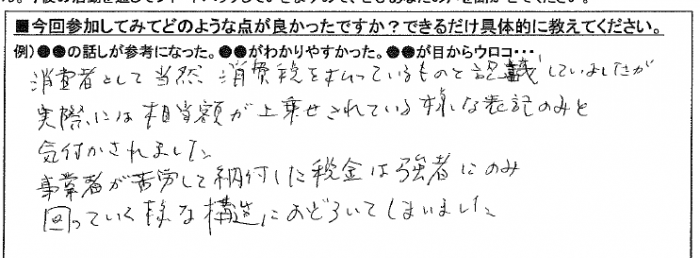 ■今回参加してみてどのような点が良かったですか？できるだけ具体的に教えてください。
例）●●の話しが参考になった。●●がわかりやすかった。●●が目からウロコ・・・
消費者として当然、消費税を払っているものと認識していましたが
実際には相当額が上乗せされている様な表記のみと
気付かされました。
事業者が苦労して納付した税金は強者にのみ
回っていく様な構造におどろいてしまいました。